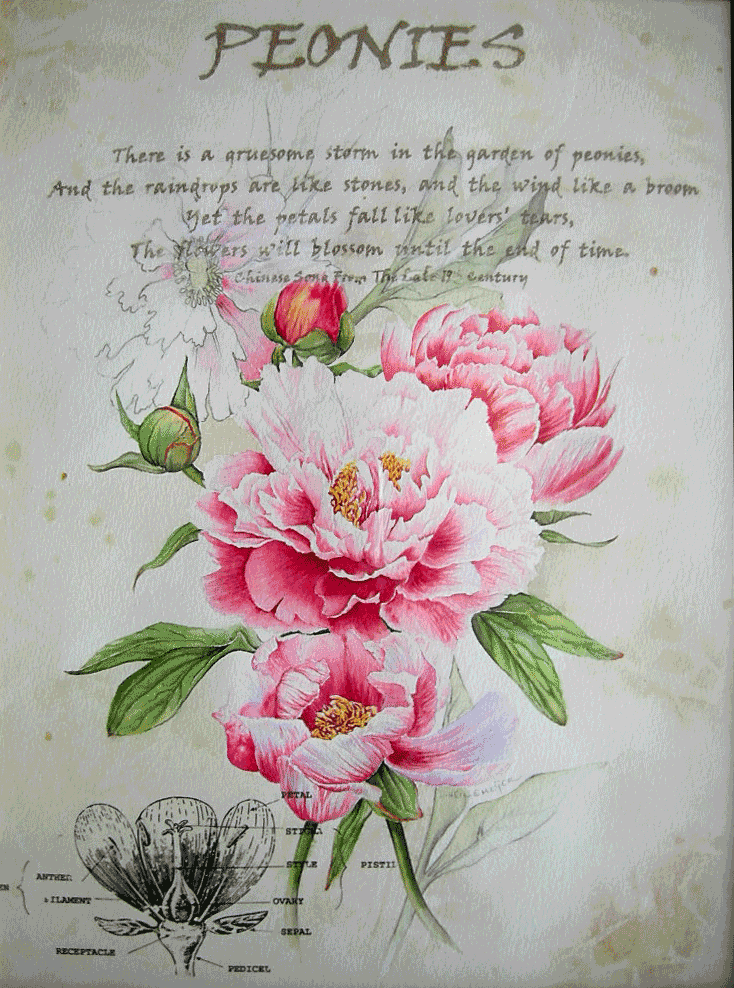 PEONIES
There is a gruesome storm in the garden of peonies,
And the raindrops are like stones, and the wind like a broom
Yet the petals fall like lovers' tears,
The flowers will blossom until the end of time.
Chinese Song From The Late 19 Century
PETAL
STIGMA
STYLE PISTIL
ANTHER
EN
FILAMENT OVARY
SEPAL
RECEPTACLE
PEDICEL